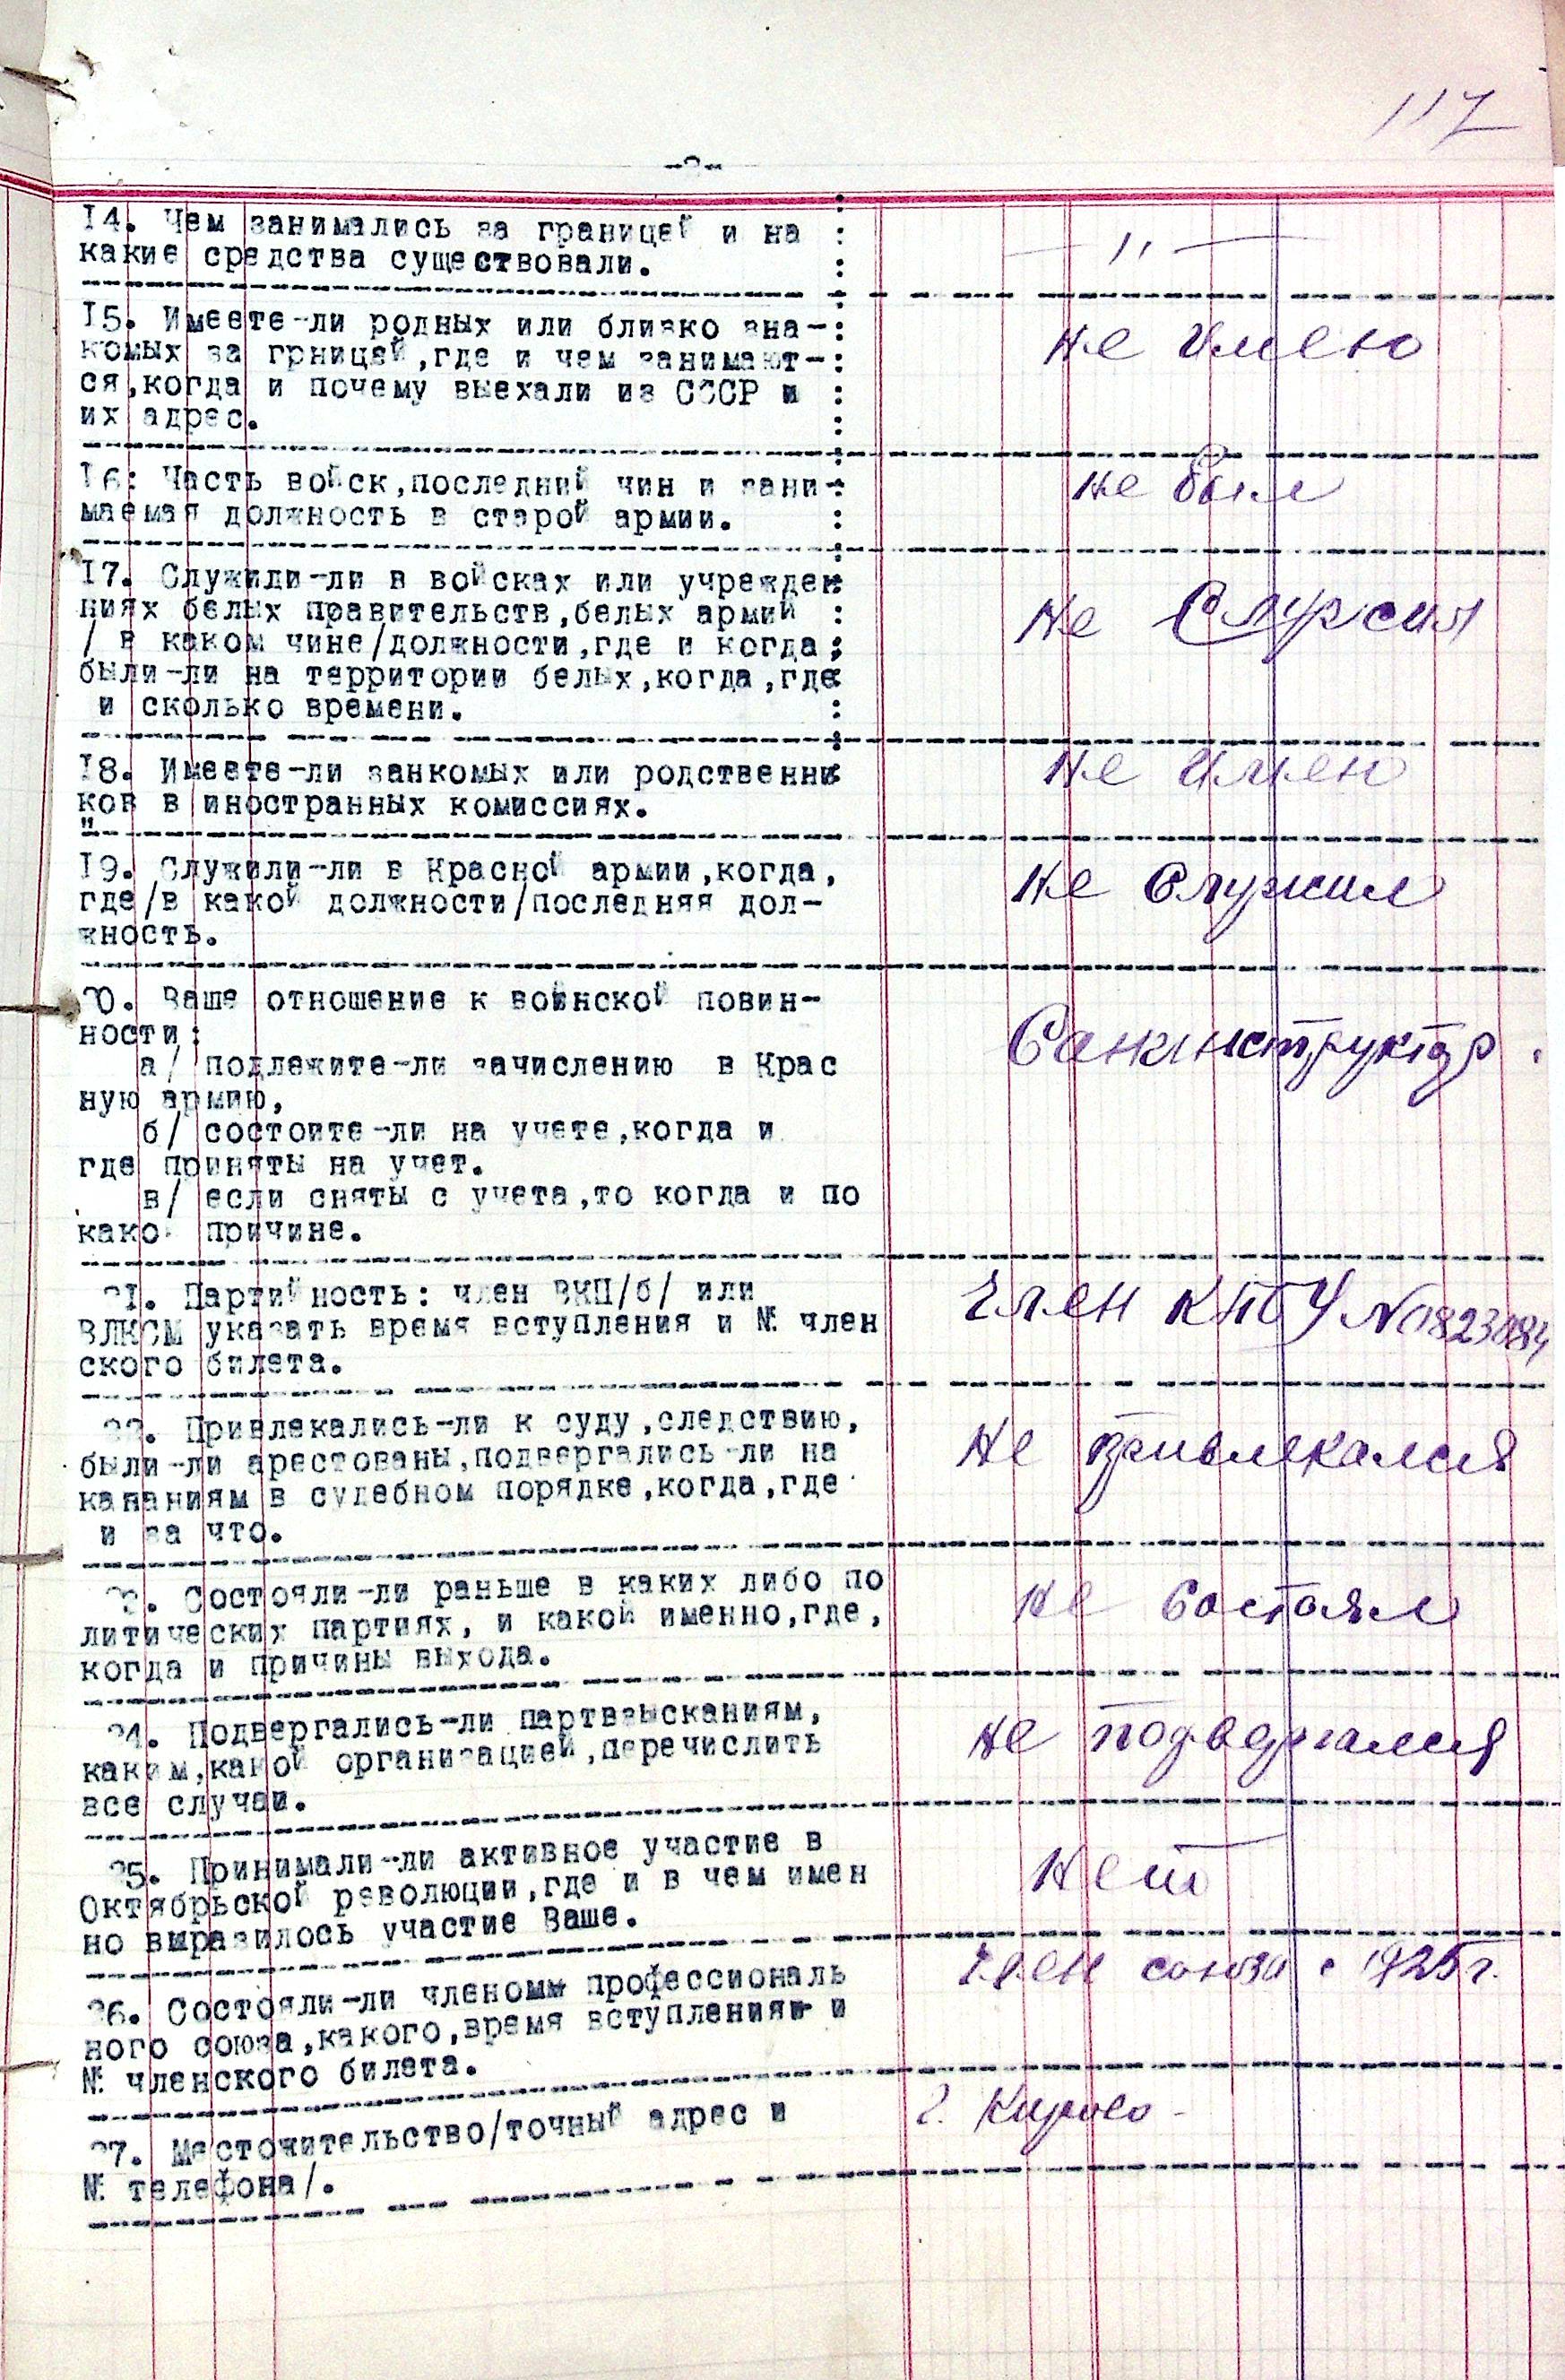 117
-2-
14. Чем занимались за границей и на :
какие средства существовали. :
— " —
15. Имеете-ли родных или близко зна-:
комых за грницей,где и чем занимают-:
ся,когда и почему выехали из СССР и :
их адрес. :
не имею
16: Часть войск,последний чин и зани-:
маемая должность в старой армии. :
не был
17. Служили-ли в войсках или учрежден:
ниях белых правительств,белых армий :
/ в каком чине/должности,где и когда;
были-ли на территории белых,когда,где:
и сколько времени. :
не служил
18. Имеете-ли занкомых или родственни:
ков в иностранных комиссиях.
"
не имею
19. Служили-ли в Красной армии,когда,
где/в какой должности/последняя дол-
жность.
не служил
20. Ваше отношение к воинской повин-
ности:
а/ подлежите-ли зачислению в Крас
ную армию,
б/ состоите-ли на учете,когда и
где приняты на учет.
в/ если сняты с учета,то когда и по
како причине.
Санинструктор.
21. Партийность: член ВКП/б/ или
ВЛКСМ указать время вступления и № член
ского билета.
Член КПбУ №
22. Привлекались-ли к суду,следствию,
были-ли арестованы,подвергались-ли на
казаниям в судебном порядке,когда,где
и за что.
не привлекался
23. Состояли-ли раньше в каких либо по
литических партиях, и какой именно,где,
когда и причины выхода.
не состоял
24. Подвергались-ли партвзысканиям,
каким,какой организацией,перечислить
все случаи.
не подвергался
25. Принимали-ли активное участие в
Октябрьской революции,где и в чем имен
но выразилось участие Ваше.
нет
26. Состояли-ли членомм профессиональ
ного союза,какого,время вступленияи и
№ членского билета.
Член союза с 1925 г.
27. Местожительство/точный адрес и
№ телефона/.
г. Кирово -